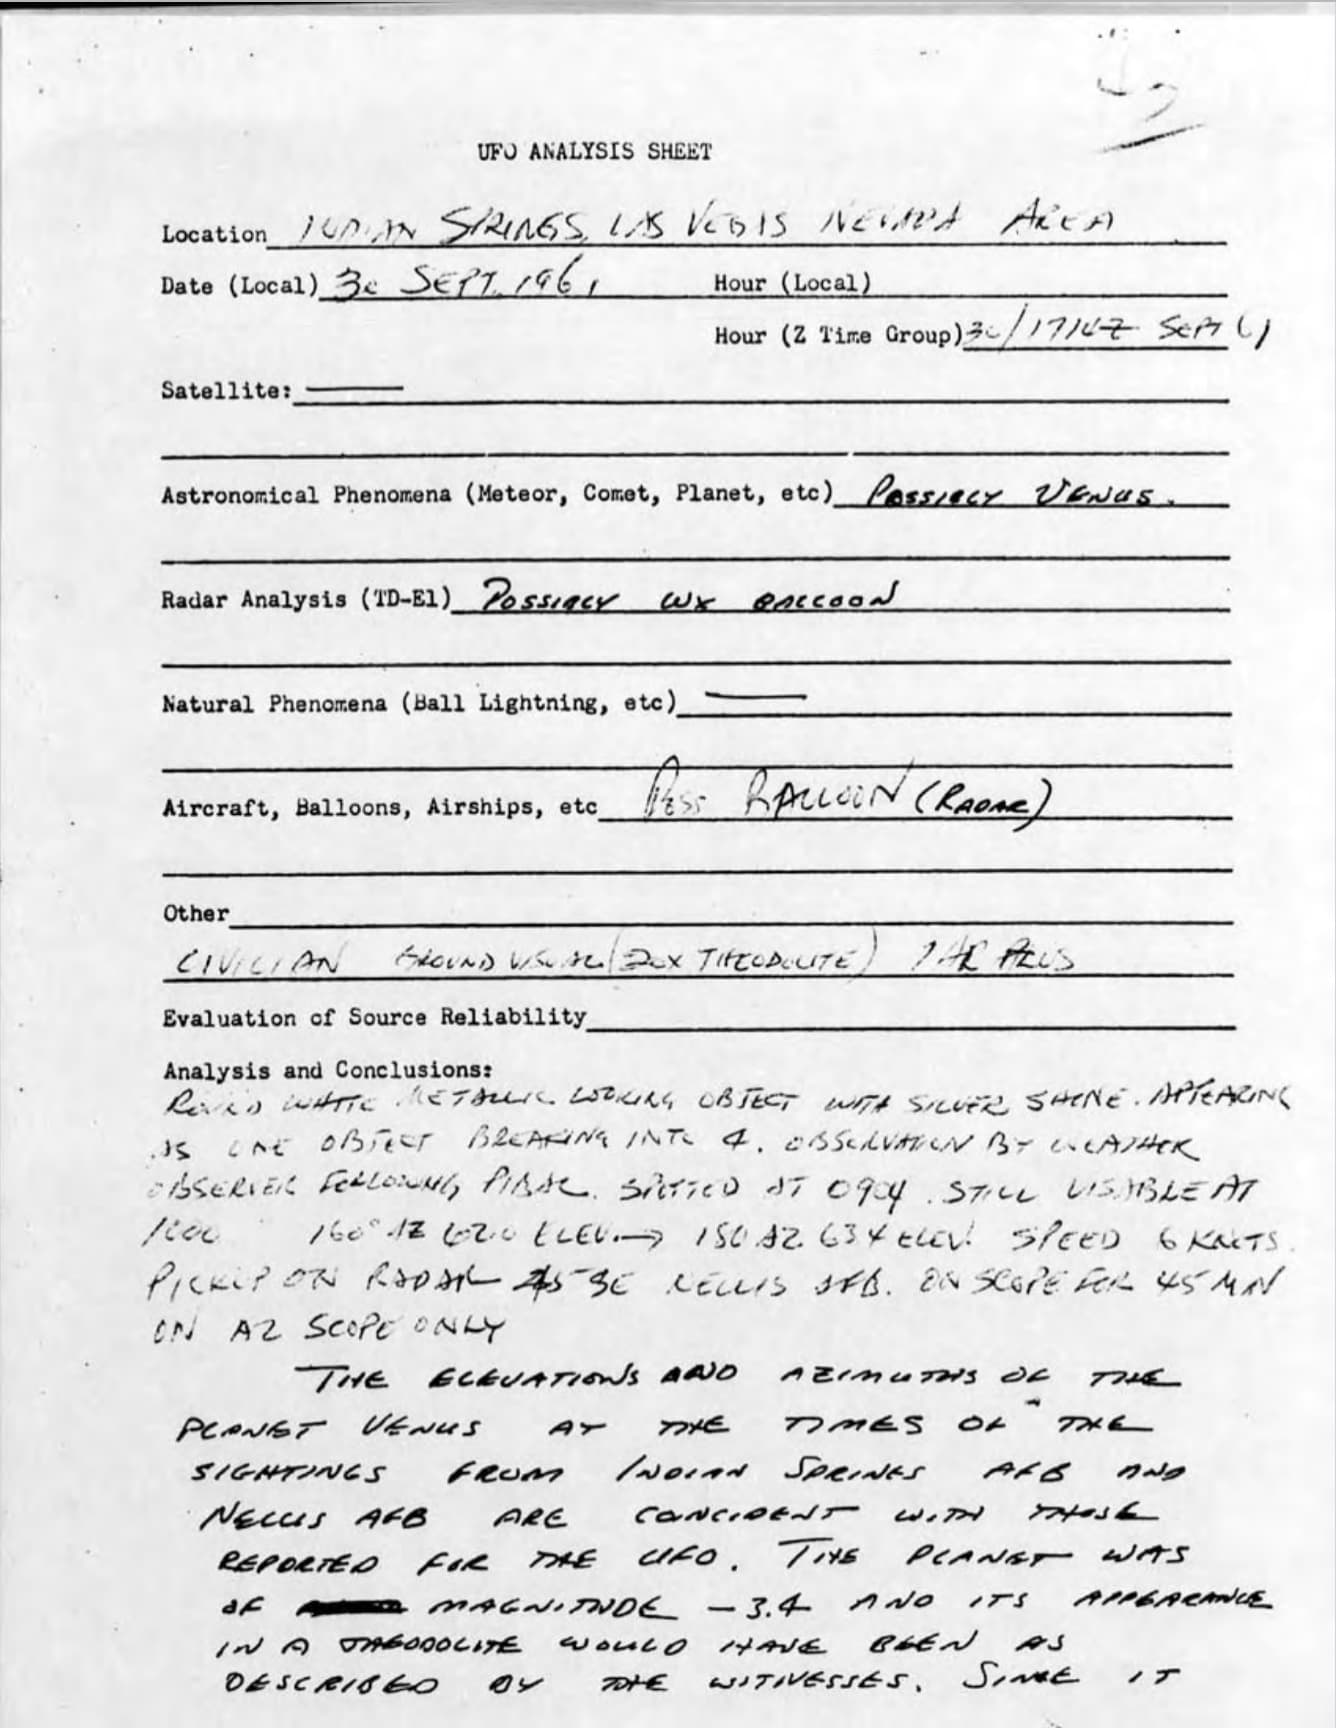 UFO ANALYSIS SHEET
Location INDIAN SPRINGS, LAS VEGAS NEVADA AREA
Date (Local) 30 SEPT. 1961 Hour (Local)
Hour (Z Time Group) 30/1714Z SEPT 61
Satellite: —
Astronomical Phenomena (Meteor, Comet, Planet, etc) POSSIBLY VENUS.
Radar Analysis (TD-E1) POSSIBLY WX BALLOON
Natural Phenomena (Ball Lightning, etc) —
Aircraft, Balloons, Airships, etc POSS BALLOON (RADAR)
Other
CIVILIAN GROUND VISUAL (20X THEODOLITE) 1 HR PLUS
Evaluation of Source Reliability
Analysis and Conclusions:
ROUND WHITE METALLIC LOOKING OBJECT WITH SILVER SHINE. APPEARING
AS ONE OBJECT BREAKING INTO 4. OBSERVATION BY WEATHER
OBSERVER FOLLOWING PIBAL. SPOTTED AT 0904. STILL VISABLE AT
1000 160° AZ 62.0 ELEV. → 180 AZ 63.4 ELEV. SPEED 6 KNOTS.
PICKUP ON RADAR SE NELLIS AFB. ON SCOPE FOR 45 MIN
ON AZ SCOPE ONLY
THE ELEVATIONS AND AZIMUTHS OF THE
PLANET VENUS AT THE TIMES OF THE
SIGHTINGS FROM INDIAN SPRINGS AFB AND
NELLIS AFB ARE COINCIDENT WITH THOSE
REPORTED FOR THE UFO. THE PLANET WAS
OF MAGNITUDE -3.4 AND ITS APPEARANCE
IN A THEODOLITE WOULD HAVE BEEN AS
DESCRIBED BY THE WITNESSES. SINCE IT